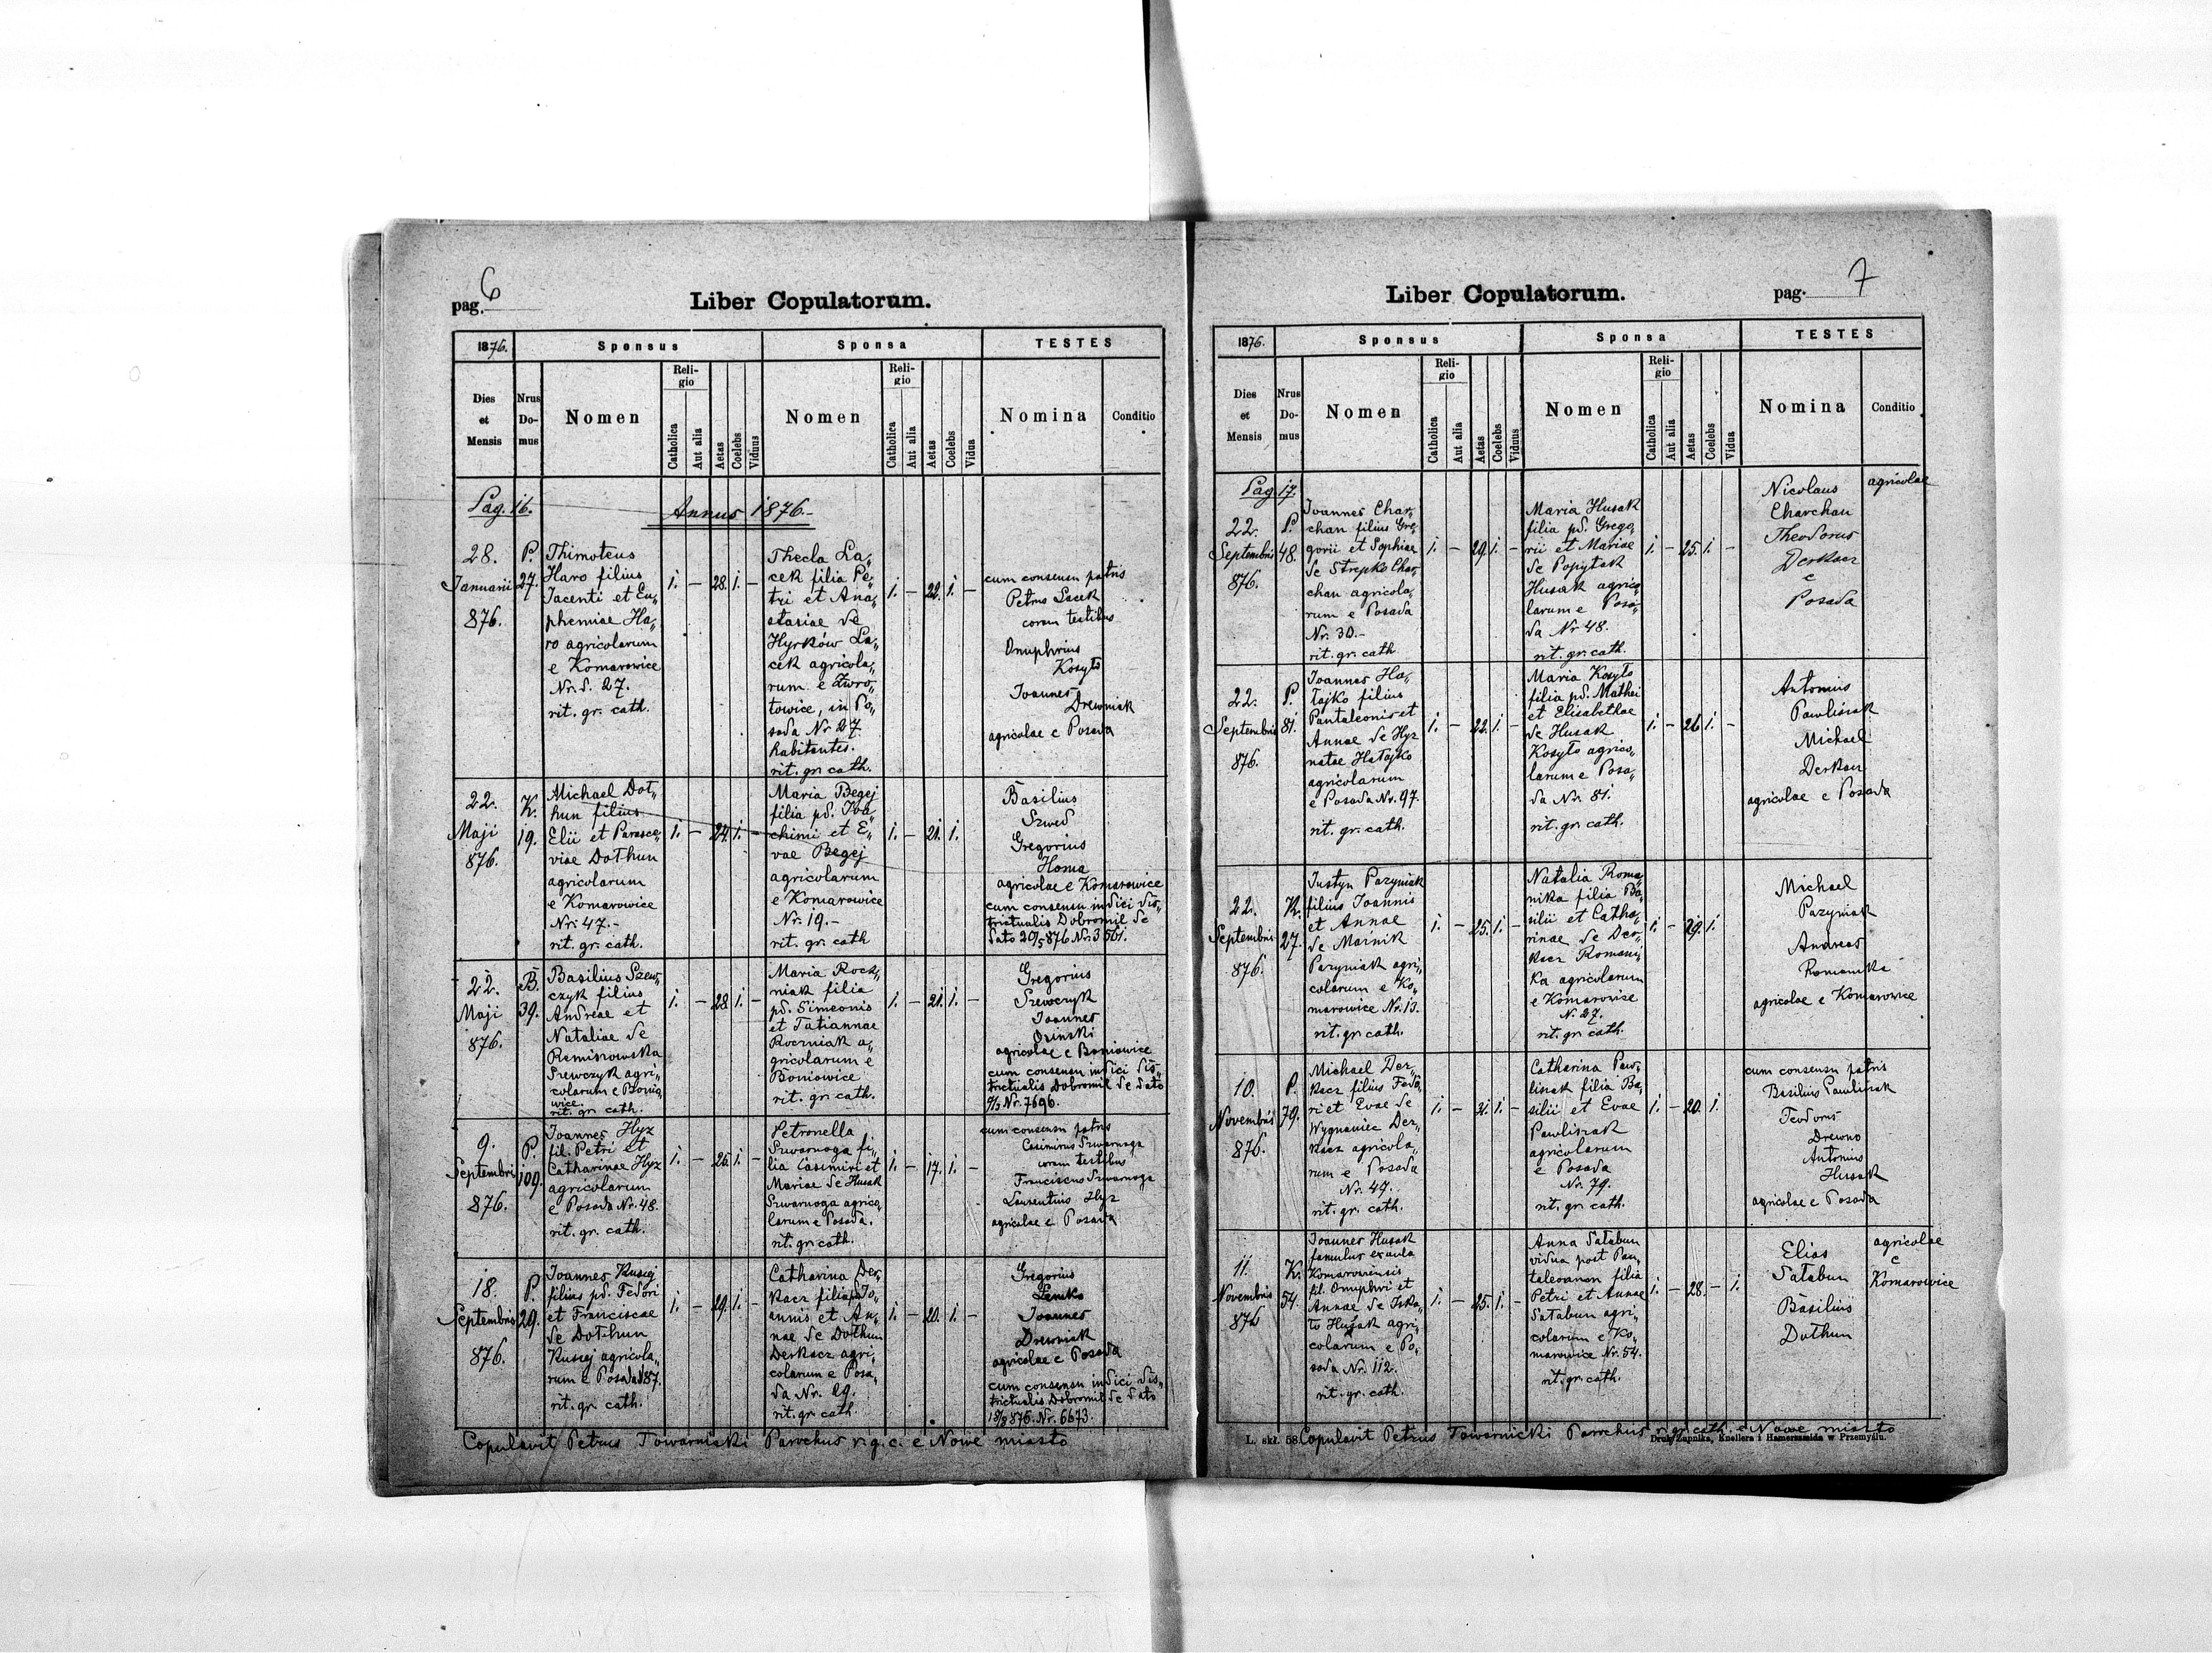 pag. 6
Liber Copulatorum.
1876.
Sponsus
Sponsa
TESTES
Dies et Mensis
Nrus Domus
Nomen
Religio
Catholica
Aut alia
Aetas
Coelebs
Viduus
Nomen
Religio
Catholica
Aut alia
Aetas
Coelebs
Vidua
Nomina
Conditio
Pag. 16.
Annus 1876.-
28.
Januarii
876.
P.
27.
Thimoteus
Haro filius
Jacenti et Eu„
phemiae Ha„
ro agricolarum
e Komarowice
Nr. d. 27.
rit. gr. cath.
1. — 28. 1. —
Thecla La„
cek filia Pe„
tri et Ana„
stasiae de
Hyrków La„
cek agricola„
rum e
towice, in Po„
sada Nr 27
habitantes.
rit. gr. cath.
1. — 22. 1. —
cum consensu patris
Petrus Lacek
coram testibus
Onuphrius
Kosyło
Joannes
Drewniak
agricolae e Posada
22.
Maji
876.
K.
19.
Michael Doł„
hun filius
Elii et Parasce„
viae Dołhun
agricolarum
e Komarowice
Nr. 47.-
rit. gr. cath.
1. — 24. 1. —
Maria Begej
filia pd. Joa„
chimi et E„
vae Begej
agricolarum
e Komarowice
Nr. 19.-
rit. gr. cath
1. — 21. 1.
Basilius
Szwed
Gregorius
Homa
agricolae e Komarowice
cum consensu indici dis„
trictualis Dobromil de
dato 20/5 876 Nr. 3561.
22.
Maji
876.
B.
39.
Basilius Szew„
czyk filius
Andreae et
Nataliae de
Remiszowska
Szewczyk agri„
colarum e Bonio„
wice.
rit. gr. cath.
1. — 28. 1. —
Maria Rocz„
niak filia
pd. Simeonis
et Tatiannae
Roczniak a„
gricolarum e
Boniowice
rit. gr. cath.
1. — 21. 1. —
Gregorius
Szewczyk
Joannes
Osinski
agricolae e Boniowice
cum consensu indici dis„
trictualis Dobromil de dato
Nr. 7696.
9.
Septembri
876.
P.
109.
Joannes Hyz
fil. Petri et
Catharinae Hyz
agricolarum
e Posada Nr. 48.
rit. gr. cath.
1. — 26. 1. —
Petronella
Szwarnoga fi„
lia Casimiri et
Mariae de Husak
Szwarnoga agrico„
larum e Posada.
rit. gr. cath.
1. — 17. 1. —
cum consensu patris
Casimirus Szwarnoga
coram testibus
Franciscus Szwarnoga
Laurentius Hyz
agricolae e Posada
18.
Septembris
876.
P.
29.
Joannes Kusiej
filius pd. Fedori
et Franciscae
de Dołhun
Kusiej agricola„
rum e Posada N 87.
rit. gr. cath.
1. — 29. 1. —
Catharina Der„
kacz filia pd Jo„
annis et An„
nae de Dołhun
Derkacz agri„
colarum e Posa„
da Nr. 29.
rit. gr. cath.
1. — 20. 1. —
Gregorius
Lenko
Joannes
Drewniak
agricolae e Posada
cum consensu indici dis„
trictualis Dobromil de dato
18/8 876. Nr. 6673.
Copulavit Petrus Towarnicki Parochus r. g. c. e Nowe miasto
Liber Copulatorum.
pag. 7
1876.
Sponsus
Sponsa
TESTES
Dies et Mensis
Nrus Domus
Nomen
Religio
Catholica
Aut alia
Aetas
Coelebs
Viduus
Nomen
Religio
Catholica
Aut alia
Aetas
Coelebs
Vidua
Nomina
Conditio
Pag. 17.
22.
Septembris
876.
P.
48.
Joannes Char„
chan filius Gre„
gorii et Sophiae
de Strepko Char„
chan agricola„
rum e Posada
Nr. 30.-
rit. gr. cath.
1. — 29. 1. —
Maria Husak
filia pd. Grego„
rii et Mariae
de Popytak
Husak agrico„
larum e Posa„
da Nr 48.
rit. gr. cath.
1. — 25. 1. —
Nicolaus
Charchan
Theodorus
Derkacz
e
Posada
agricolae
22.
Septembris
876.
P.
81.
Joannes Ha„
łajko filius
Pantaleonis et
Annae de Hyz
natae Hałajko
agricolarum
e Posada Nr. 97.
rit. gr. cath.
1. — 22. 1. —
Maria Kosyło
filia pd. Mathei
et Elisabethae
de Husak
Kosyło agrico„
larum e Posa„
da Nr. 81.
rit. gr. cath.
1. — 26. 1. —
Antonius
Pawliszak
Michael
Derkacz
agricolae e Posada
22.
Septembris
876.
K.
27.
Justyn Pazyniak
filius Joannis
et Annae
de Marnik
Pazyniak agri„
colarum e Ko„
marowice Nr. 13.
rit. gr. cath.
1. — 25. 1. —
Natalia Roma„
nika filia Ba„
silii et Catha„
rinae de Der„
kacz Romani„
ka agricolarum
e Komarowice
N. 27.
rit. gr. cath.
1. — 29. 1.
Michael
Pazyniak
Andreas
Romanika
agricolae e Komarowice
10.
Novembris
876.
P.
79.
Michael Der„
kacz filius Fedo„
ri et Evae de
Wygnaniec Der„
kacz agricola„
rum e Posada
Nr. 47.
rit. gr. cath.
1. — 21. 1. —
Catharina Paw„
liszak filia Ba„
silii et Evae
Pawliszak
agricolarum
e Posada
Nr. 79.
rit. gr. cath.
1. — 20. 1.
cum consensu patris
Basilius Pawliszak
Teodorus
Drewno
Antonius
Husak
agricolae e Posada
11.
Novembris
876
K.
54.
Joannes Husak
famulus ex aula
Komarowiensis
fil. Onuphri et
Annae de
Husak agri„
colarum e Po„
sada Nr. 112.
rit. gr. cath.
1. — 25. 1. —
Anna Satabun
vidua post Pan„
taleonem filia
Petri et Annae
Satabun agri„
colarum e Ko„
marowice Nr. 54.
rit. gr. cath.
1. — 28. — 1.
Elias
Satabun
Basilius
Dołhun
agricolae
e
Komarowice
L. skł. 58.
Copulavit Petrus Towarnicki Parochus r. gr. cath. e Nowe miasto
Druk Żupnika, Knellera i Hamerszmida w Przemyślu.